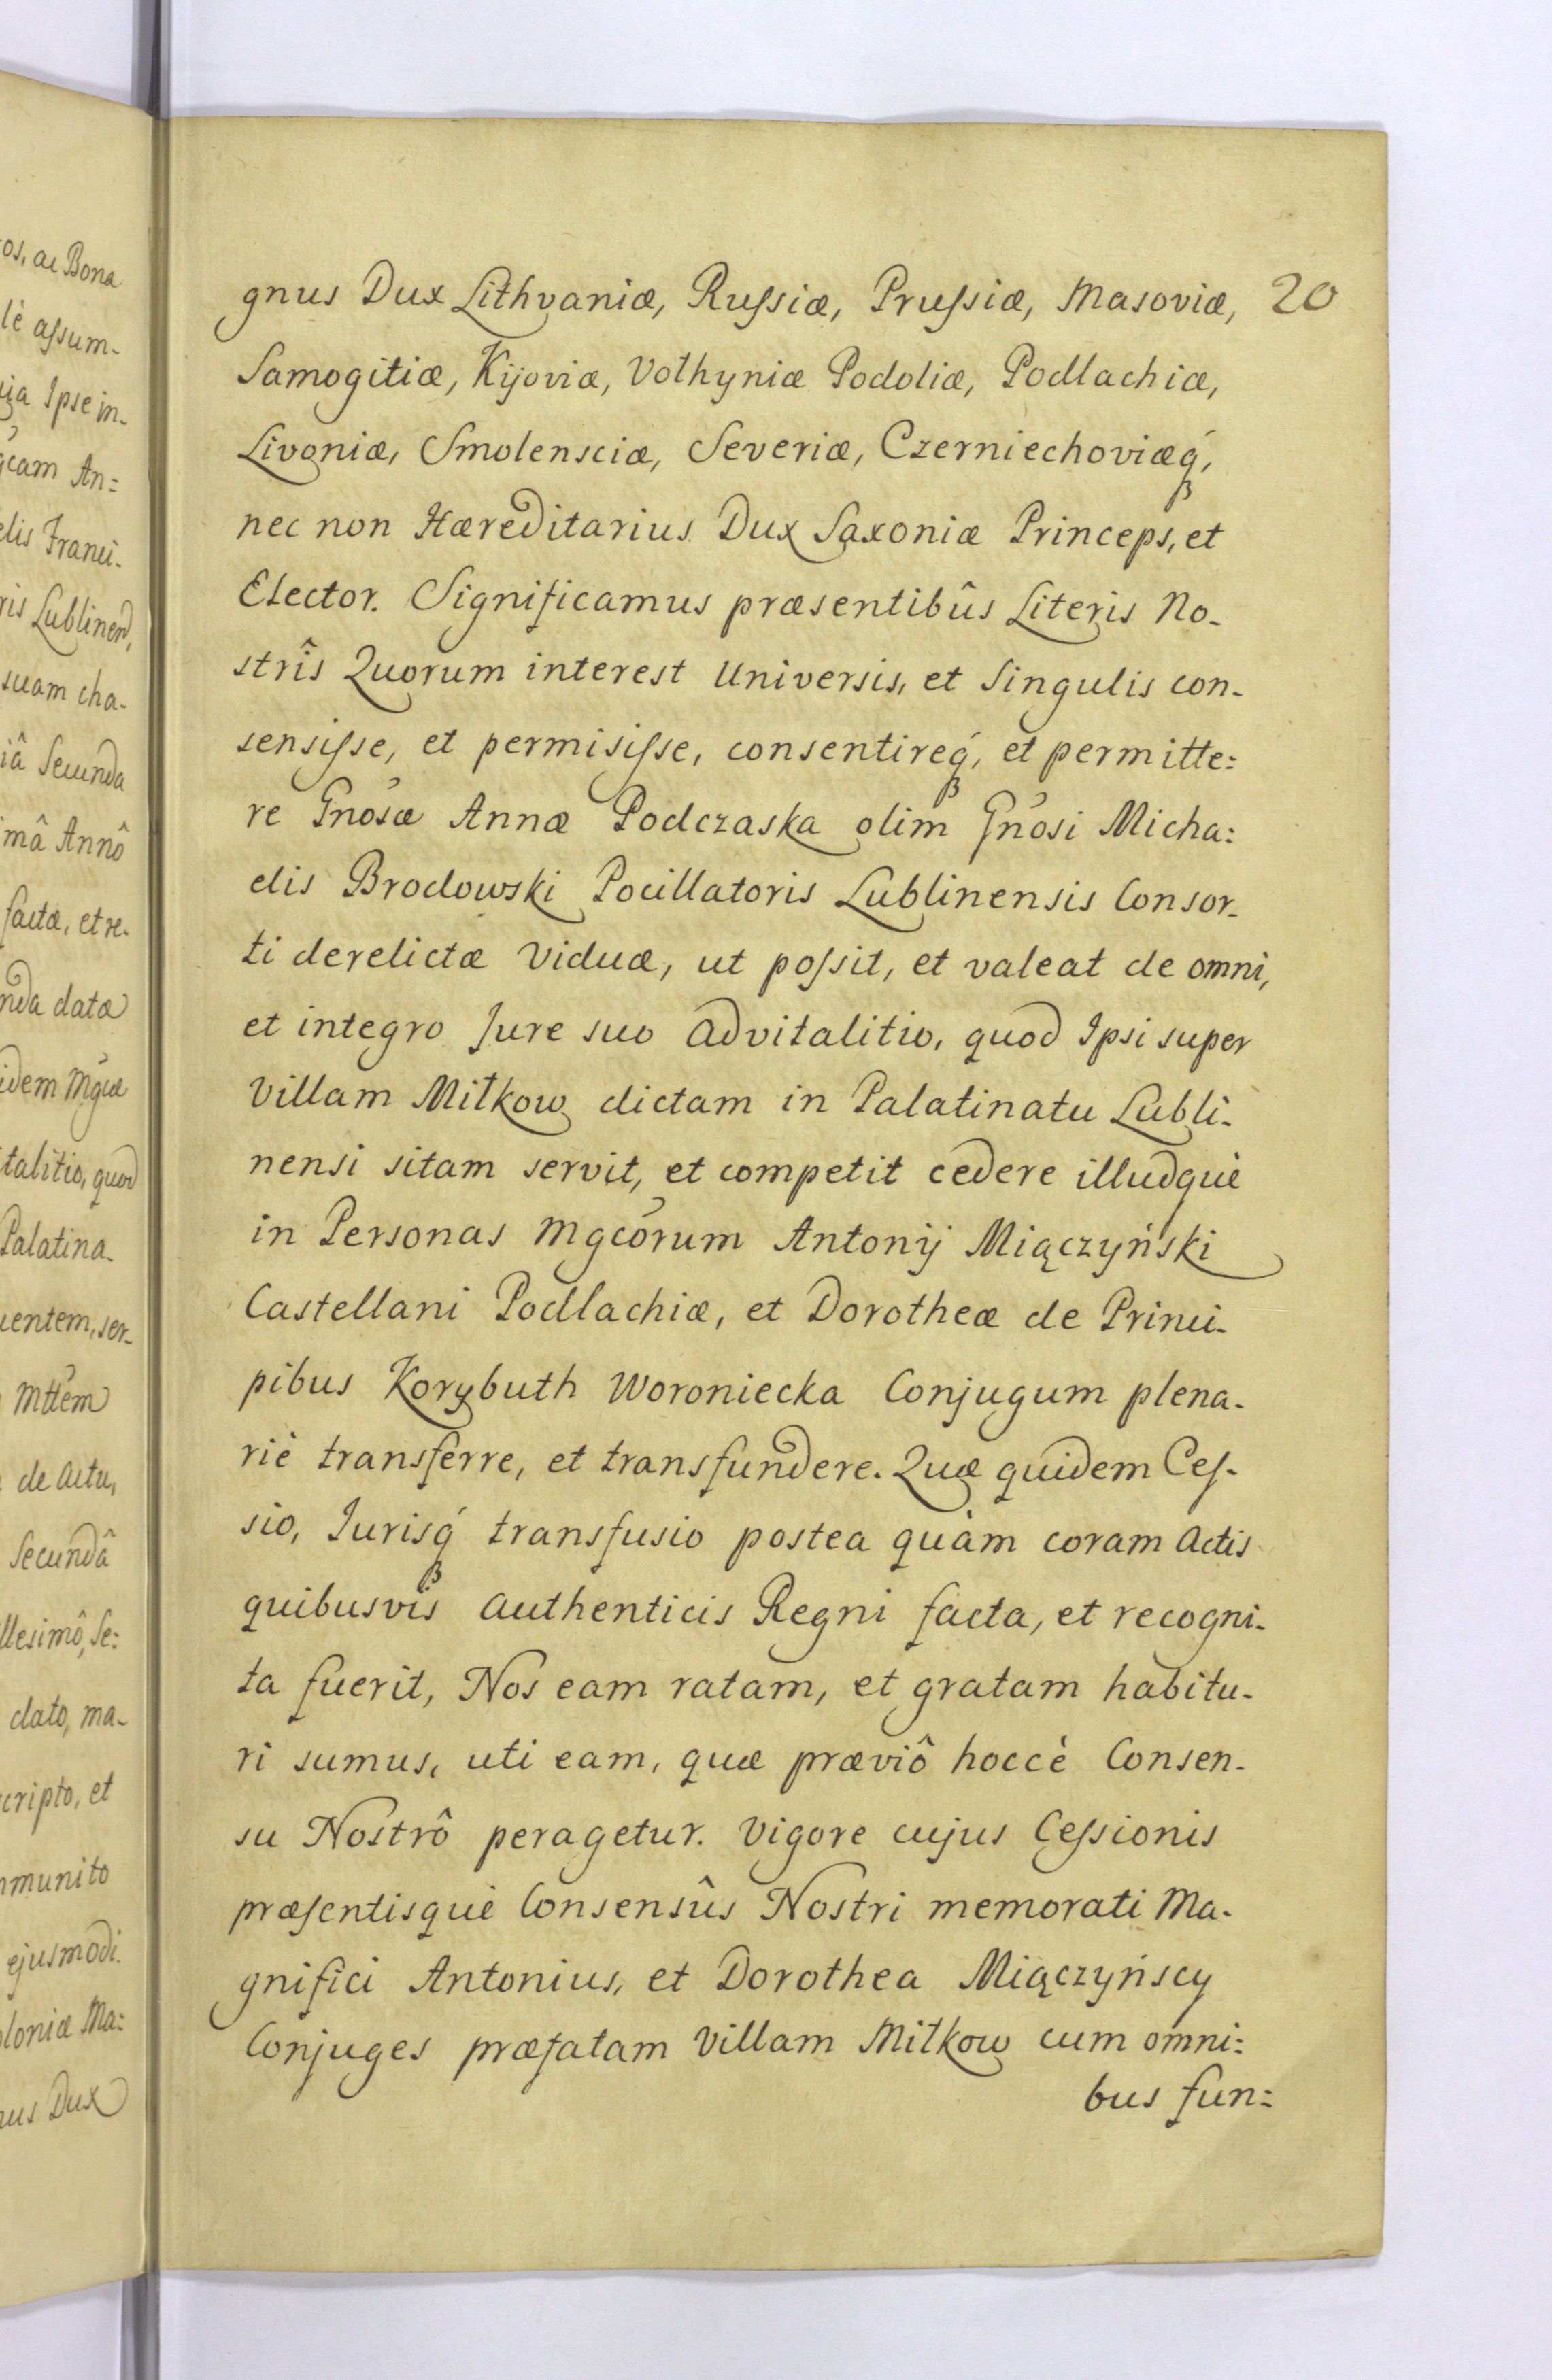 os, ac Bona
lè assum-
Ipse in-
An=
elis Franci-
ris Lublinen,
suam cha-
iâ Secunda
imâ Annô
factæ, et re-
nda data
idem Mgcæ
talitio, quod
Palatina-
uentem, ser-
Mttem
de actu,
Secundâ
llesimô, Se:
dato, ma-
cripto, et
mmunito
ejusmodi
loniæ Ma:
nus Dux
gnus Dux Lithvaniæ, Russiæ, Prussiæ, Masoviæ, 20
Samogitiæ, Kijoviæ, Volhyniæ Podoliæ, Podlachiæ,
Livoniæ, Smolensciæ, Severiæ, Czerniechoviæq́,
nec non Hæreditarius Dux Saxoniæ Princeps, et
Elector. Significamus præsentibûs Literis No-
strîs Quorum interest Universis, et Singulis con-
sensisse, et permisisse, consentireq́, et permitte=
re Gnósæ Annæ Podczaska olim Gnósi Micha=
elis Brodowski Pocillatoris Lublinensis Consor-
ti derelictæ Viduæ, ut possit, et valeat de omni,
et integro Jure suo advitalitio, quod Ipsi super
Villam Miłkow dictam in Palatinatu Lubli-
nensi sitam servit, et competit cedere illudquè
in Personas Mgcórum Antonij Miączyński
Castellani Podlachiæ, et Dorotheæ de Princi-
pibus Korybuth Woroniecka Conjugum plena-
riè transferre, et transfundere. Quæ quidem Ces-
sio, Jurisq́ transfusio postea quàm coram Actis
quibusvis authenticis Regni facta, et recogni-
ta fuerit, Nos eam ratam, et gratam habitu-
ri sumus, uti eam, quæ præviô hoccè Consen-
su Nostrô peragetur. Vigore cujus Cessionis
præsentisquè Consensûs Nostri memorati Ma-
gnifici Antonius, et Dorothea Miączyńscy
Conjuges præfatam Villam Miłkow cum omni=
bus fun=